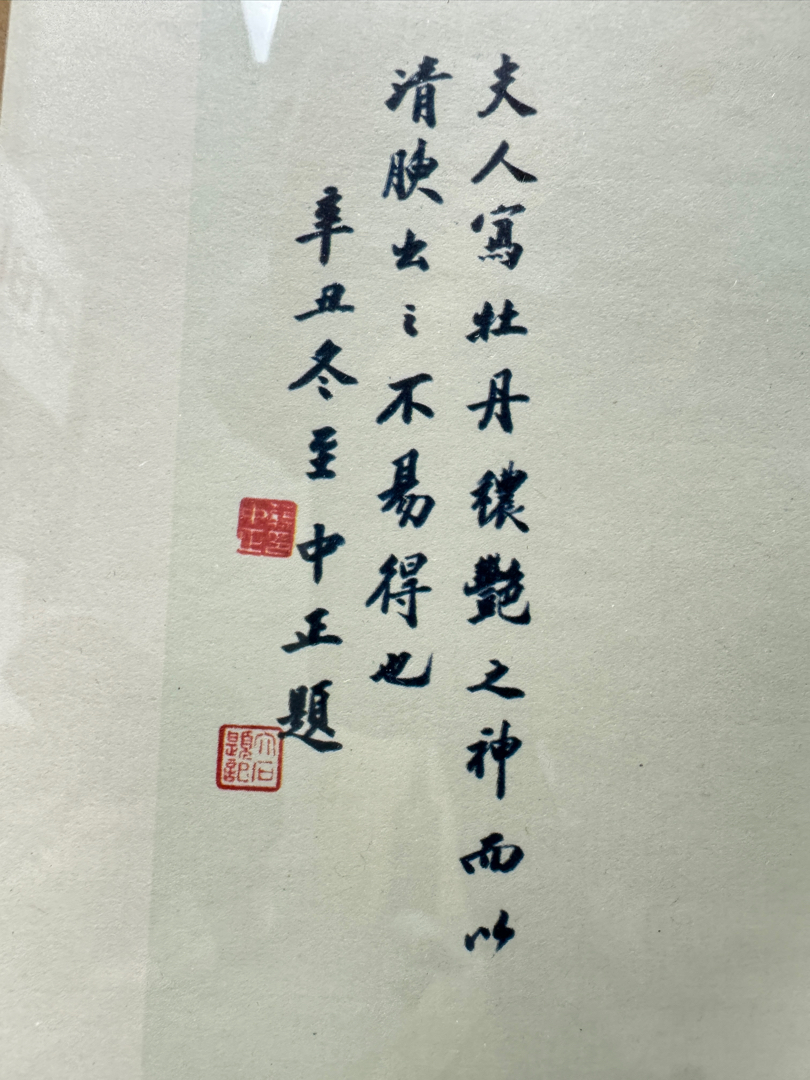 夫人寫牡丹穠艷之神而以
清腴出之不易得也
辛丑冬至中正題
介石題記